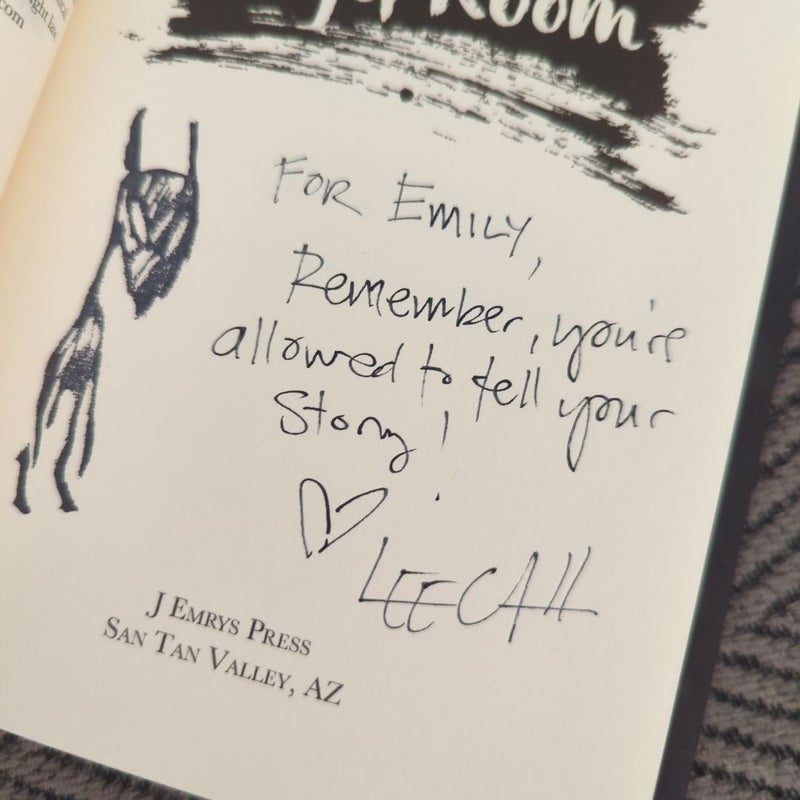 Room
FOR EMILY,
Remember, you're
allowed to tell your
Story!
LEECAH
J EMRYS PRESS
SAN TAN VALLEY, AZ